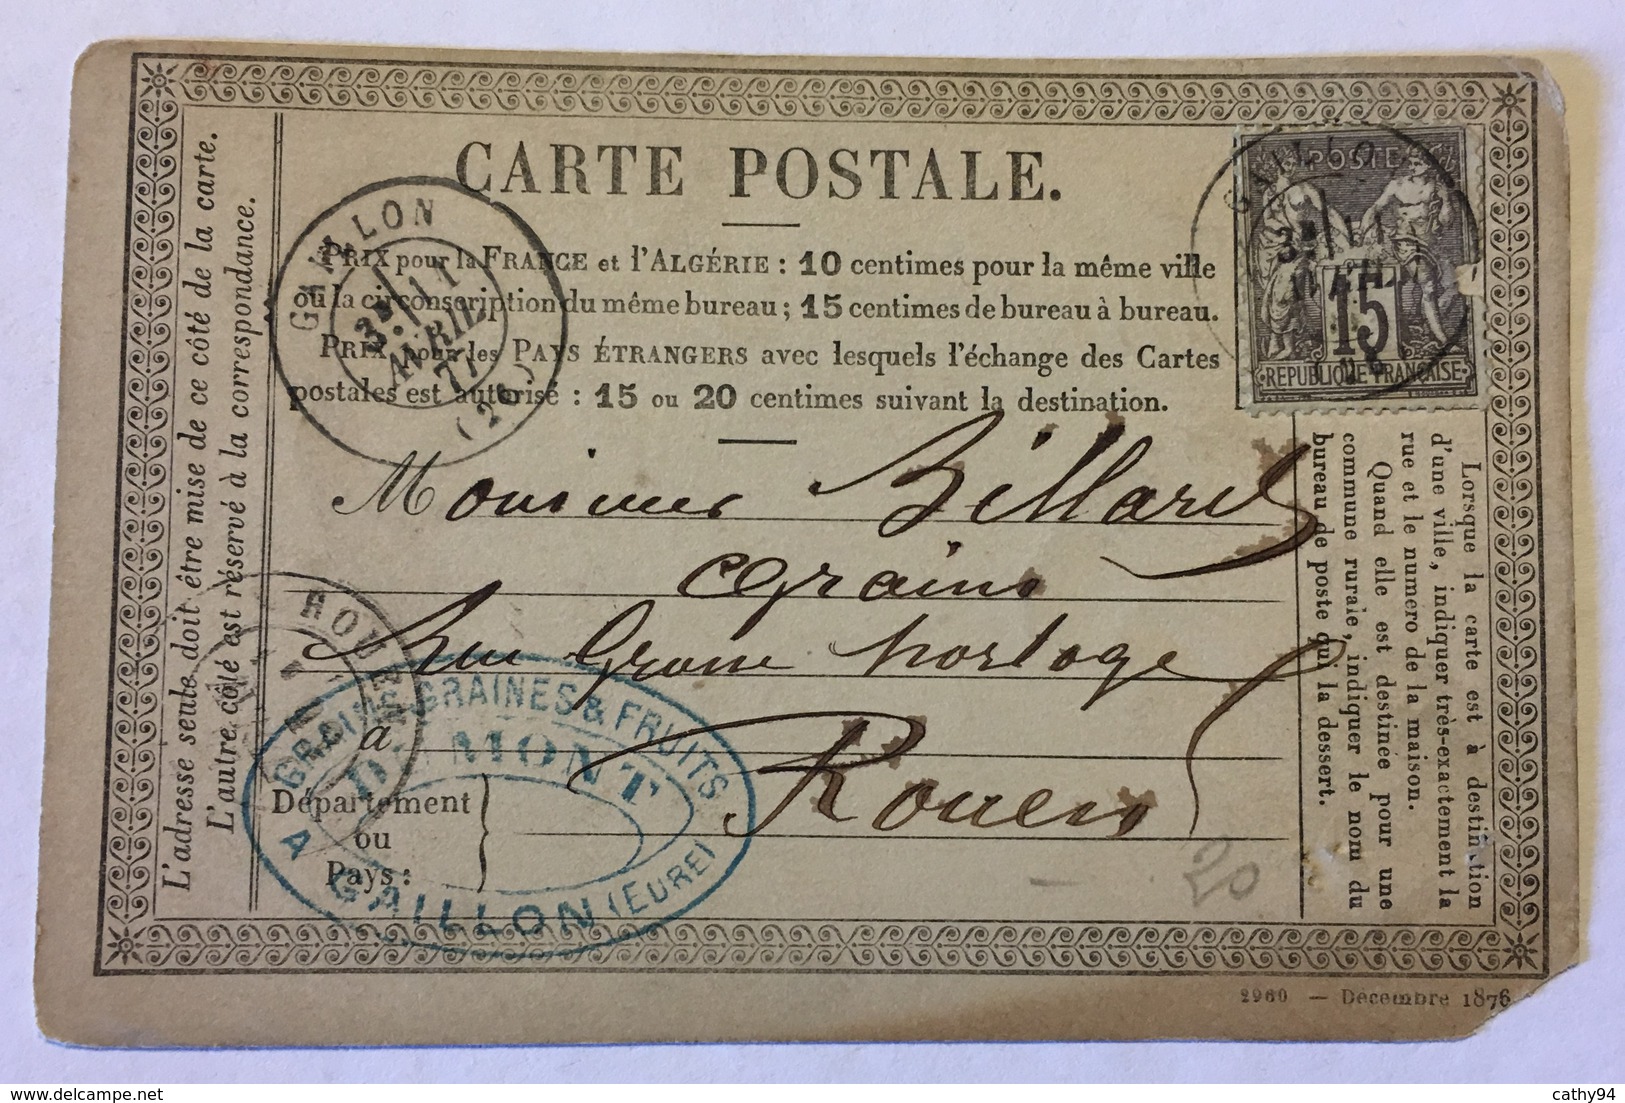 CARTE POSTALE.
PRIX pour la FRANCE et l'ALGÉRIE : 10 centimes pour la même ville
ou la circonscription du même bureau ; 15 centimes de bureau à bureau.
PRIX pour les PAYS ÉTRANGERS avec lesquels l'échange des Cartes
postales est autorisé : 15 ou 20 centimes suivant la destination.
L'adresse seule doit être mise de ce côté de la carte.
L'autre côté est réservé à la correspondance.
GAILLON
3E 11
AVRIL
77
(26)
GAILLO
3E 11
POSTE
15
REPUBLIQUE FRANÇAISE
Monsieur Billard
Grains
Rue Grosse horloge
à
Rouen
Département
ou
Pays :
ROUEN
GRAINS, GRAINES & FRUITS
A GAILLON (EURE)
Lorsque la carte est à destination
d'une ville, indiquer très-exactement la
rue et le numero de la maison.
Quand elle est destinée pour une
commune rurale, indiquer le nom du
bureau de poste qui la dessert.
20
2960 — Décembre 1876
cathy94